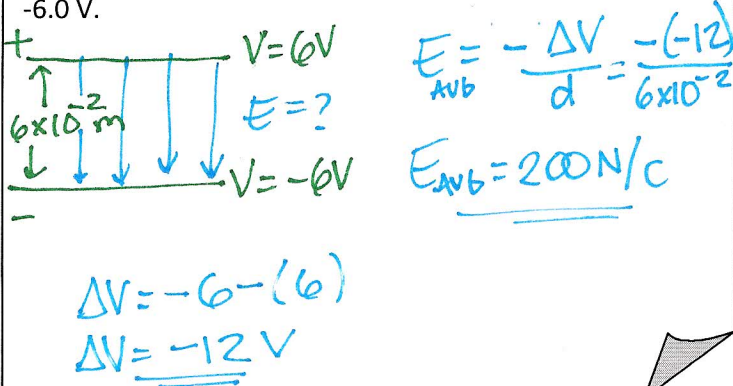 -6.0 V.
+
V=6V
6x10⁻² m
E=?
V=-6V
-
E_AVG = - ΔV/d = -(-12)/6x10⁻²
E_AVG = 200 N/C
ΔV = -6-(6)
ΔV = -12 V